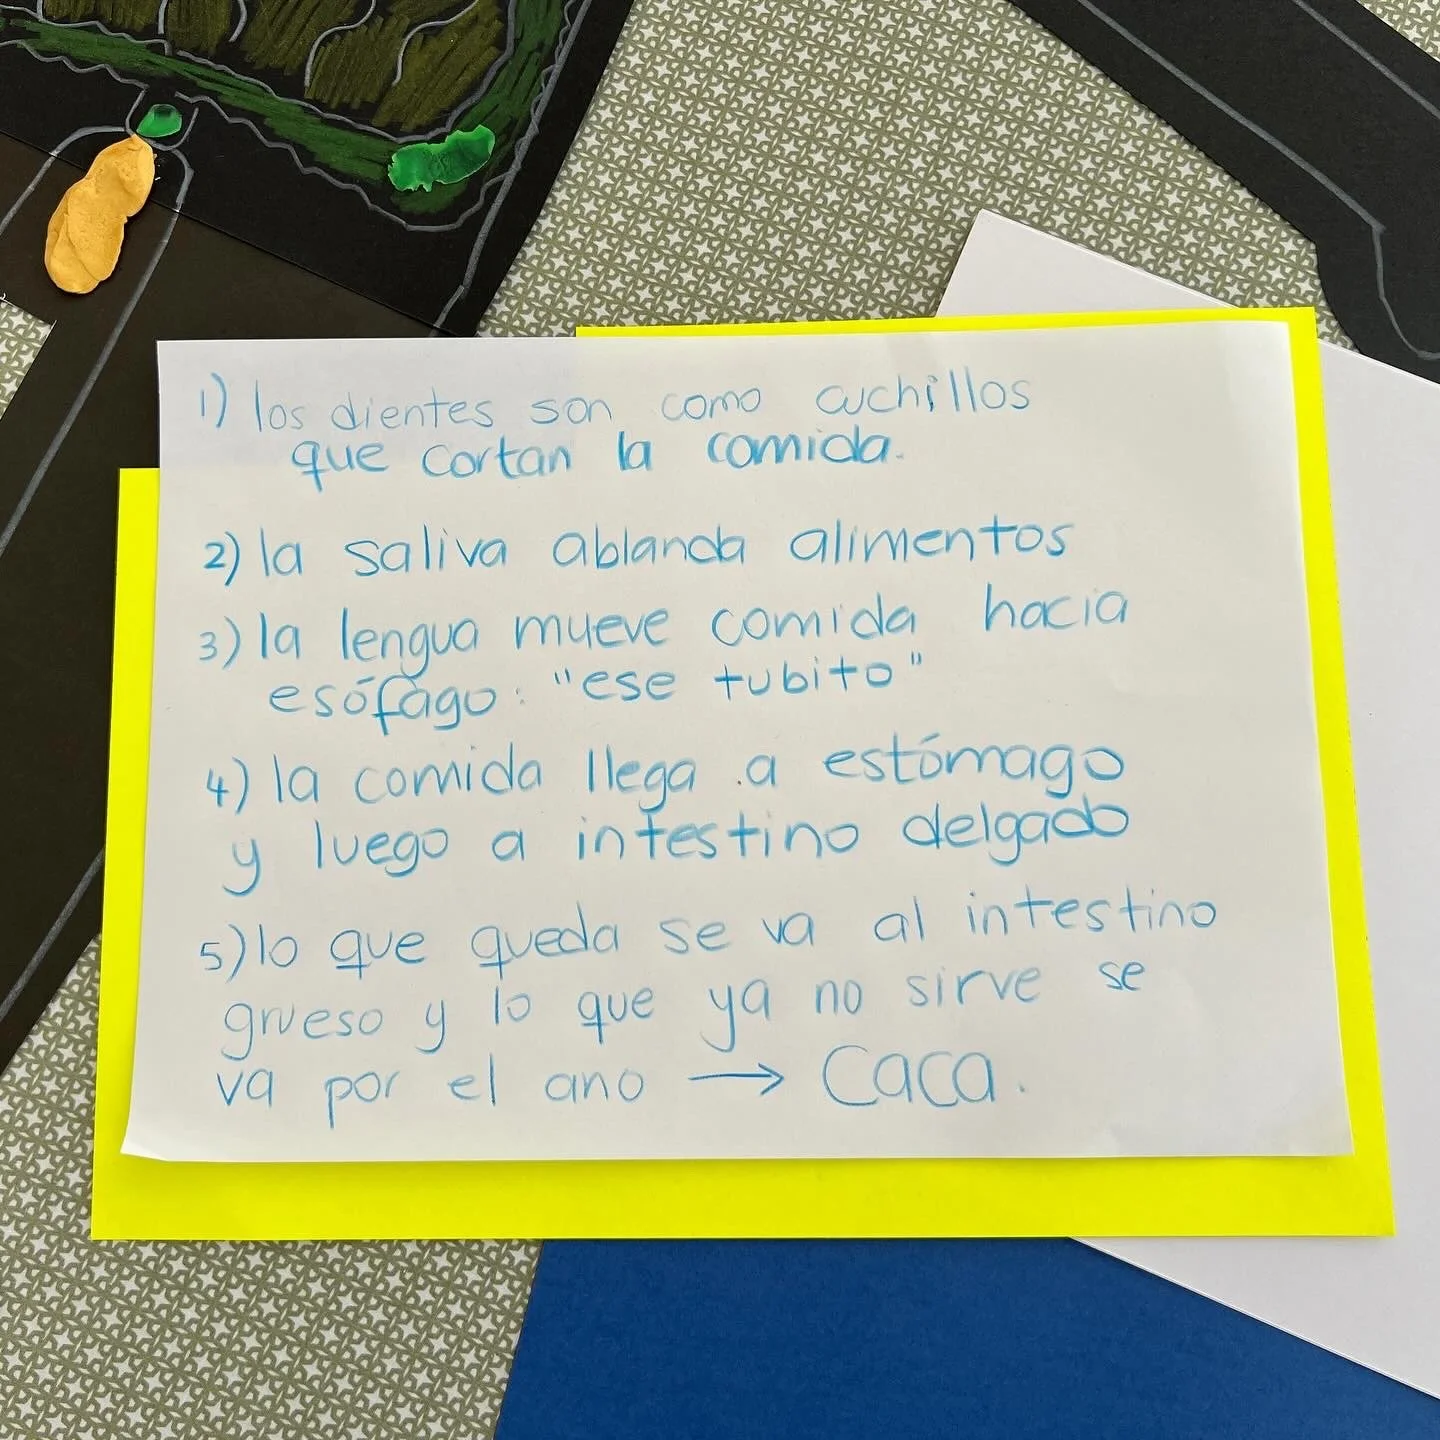 1) los dientes son como cuchillos
que cortan la comida.
2) la saliva ablanda alimentos
3) la lengua mueve comida hacia
esófago: "ese tubito"
4) la comida llega a estómago
y luego a intestino delgado
5) lo que queda se va al intestino
grueso y lo que ya no sirve se
va por el ano → Caca.